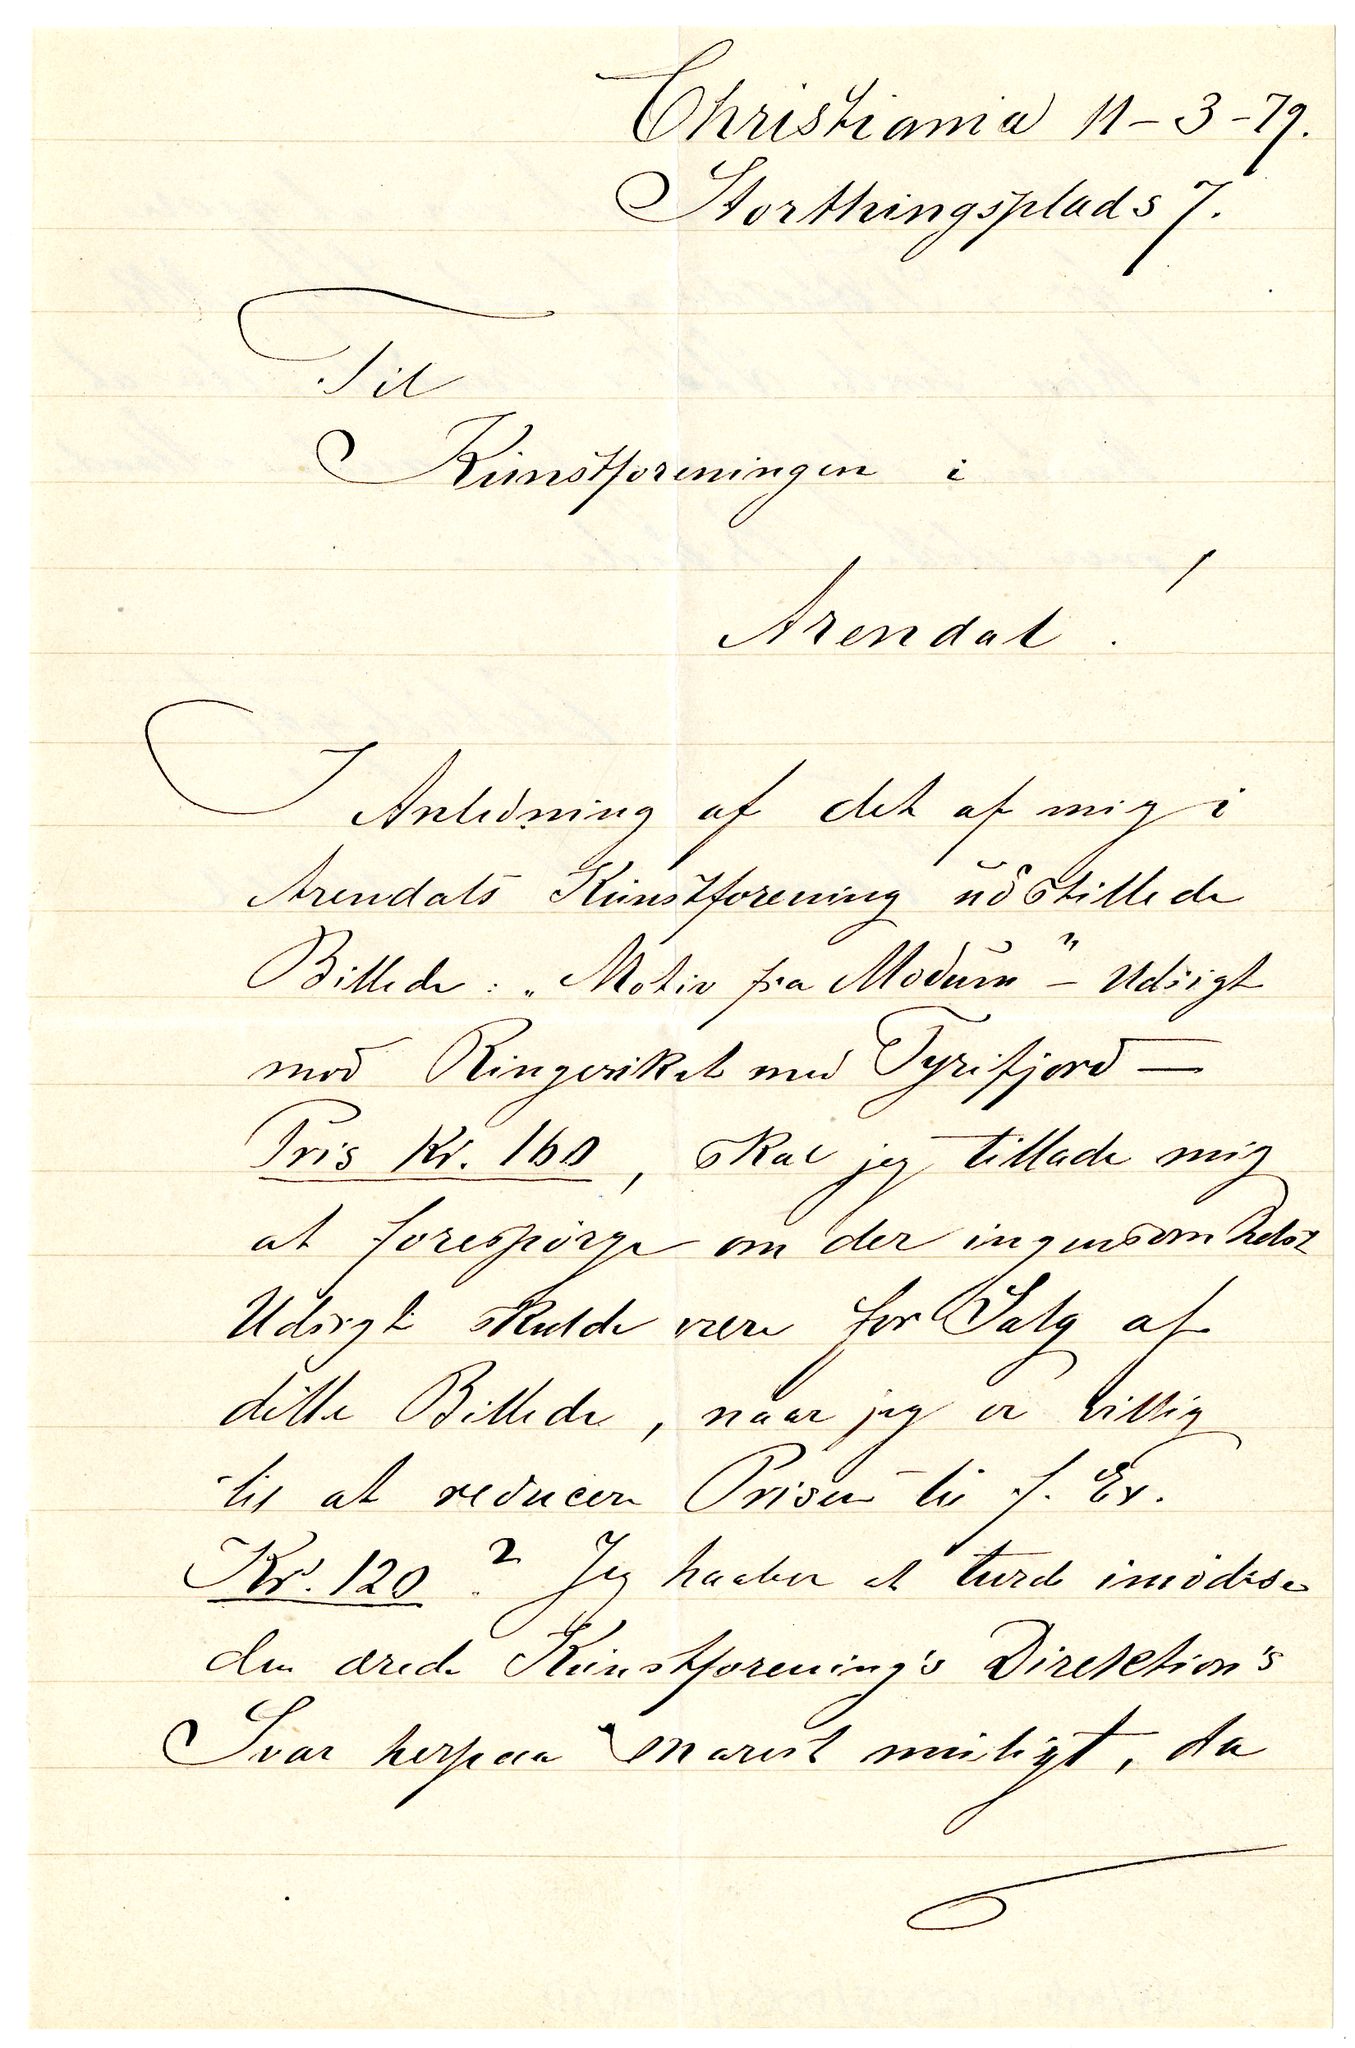 Christiania 11-3-79.
Storthingsplads 7.
Til
Kunstforeningen i
Arendal!
I Anledning af det af mig i
Arendals Kunstforening udstillede
Billede: „Motiv fra Modum" - Udsigt
mod Ringeriket med Tyrifjord —
Pris Kr. 160, skal jeg tillade mig
at forespørge om der ingensomhelst
Udsigt skulde være for Salg af
dette Billede, naar jeg er villig
til at reducere Prisen til f. Ex.
Kr. 120? Jeg haaber at turde imødese
den ærede Kunstforening's Direktion's
Svar herpaa snarest muligt, da